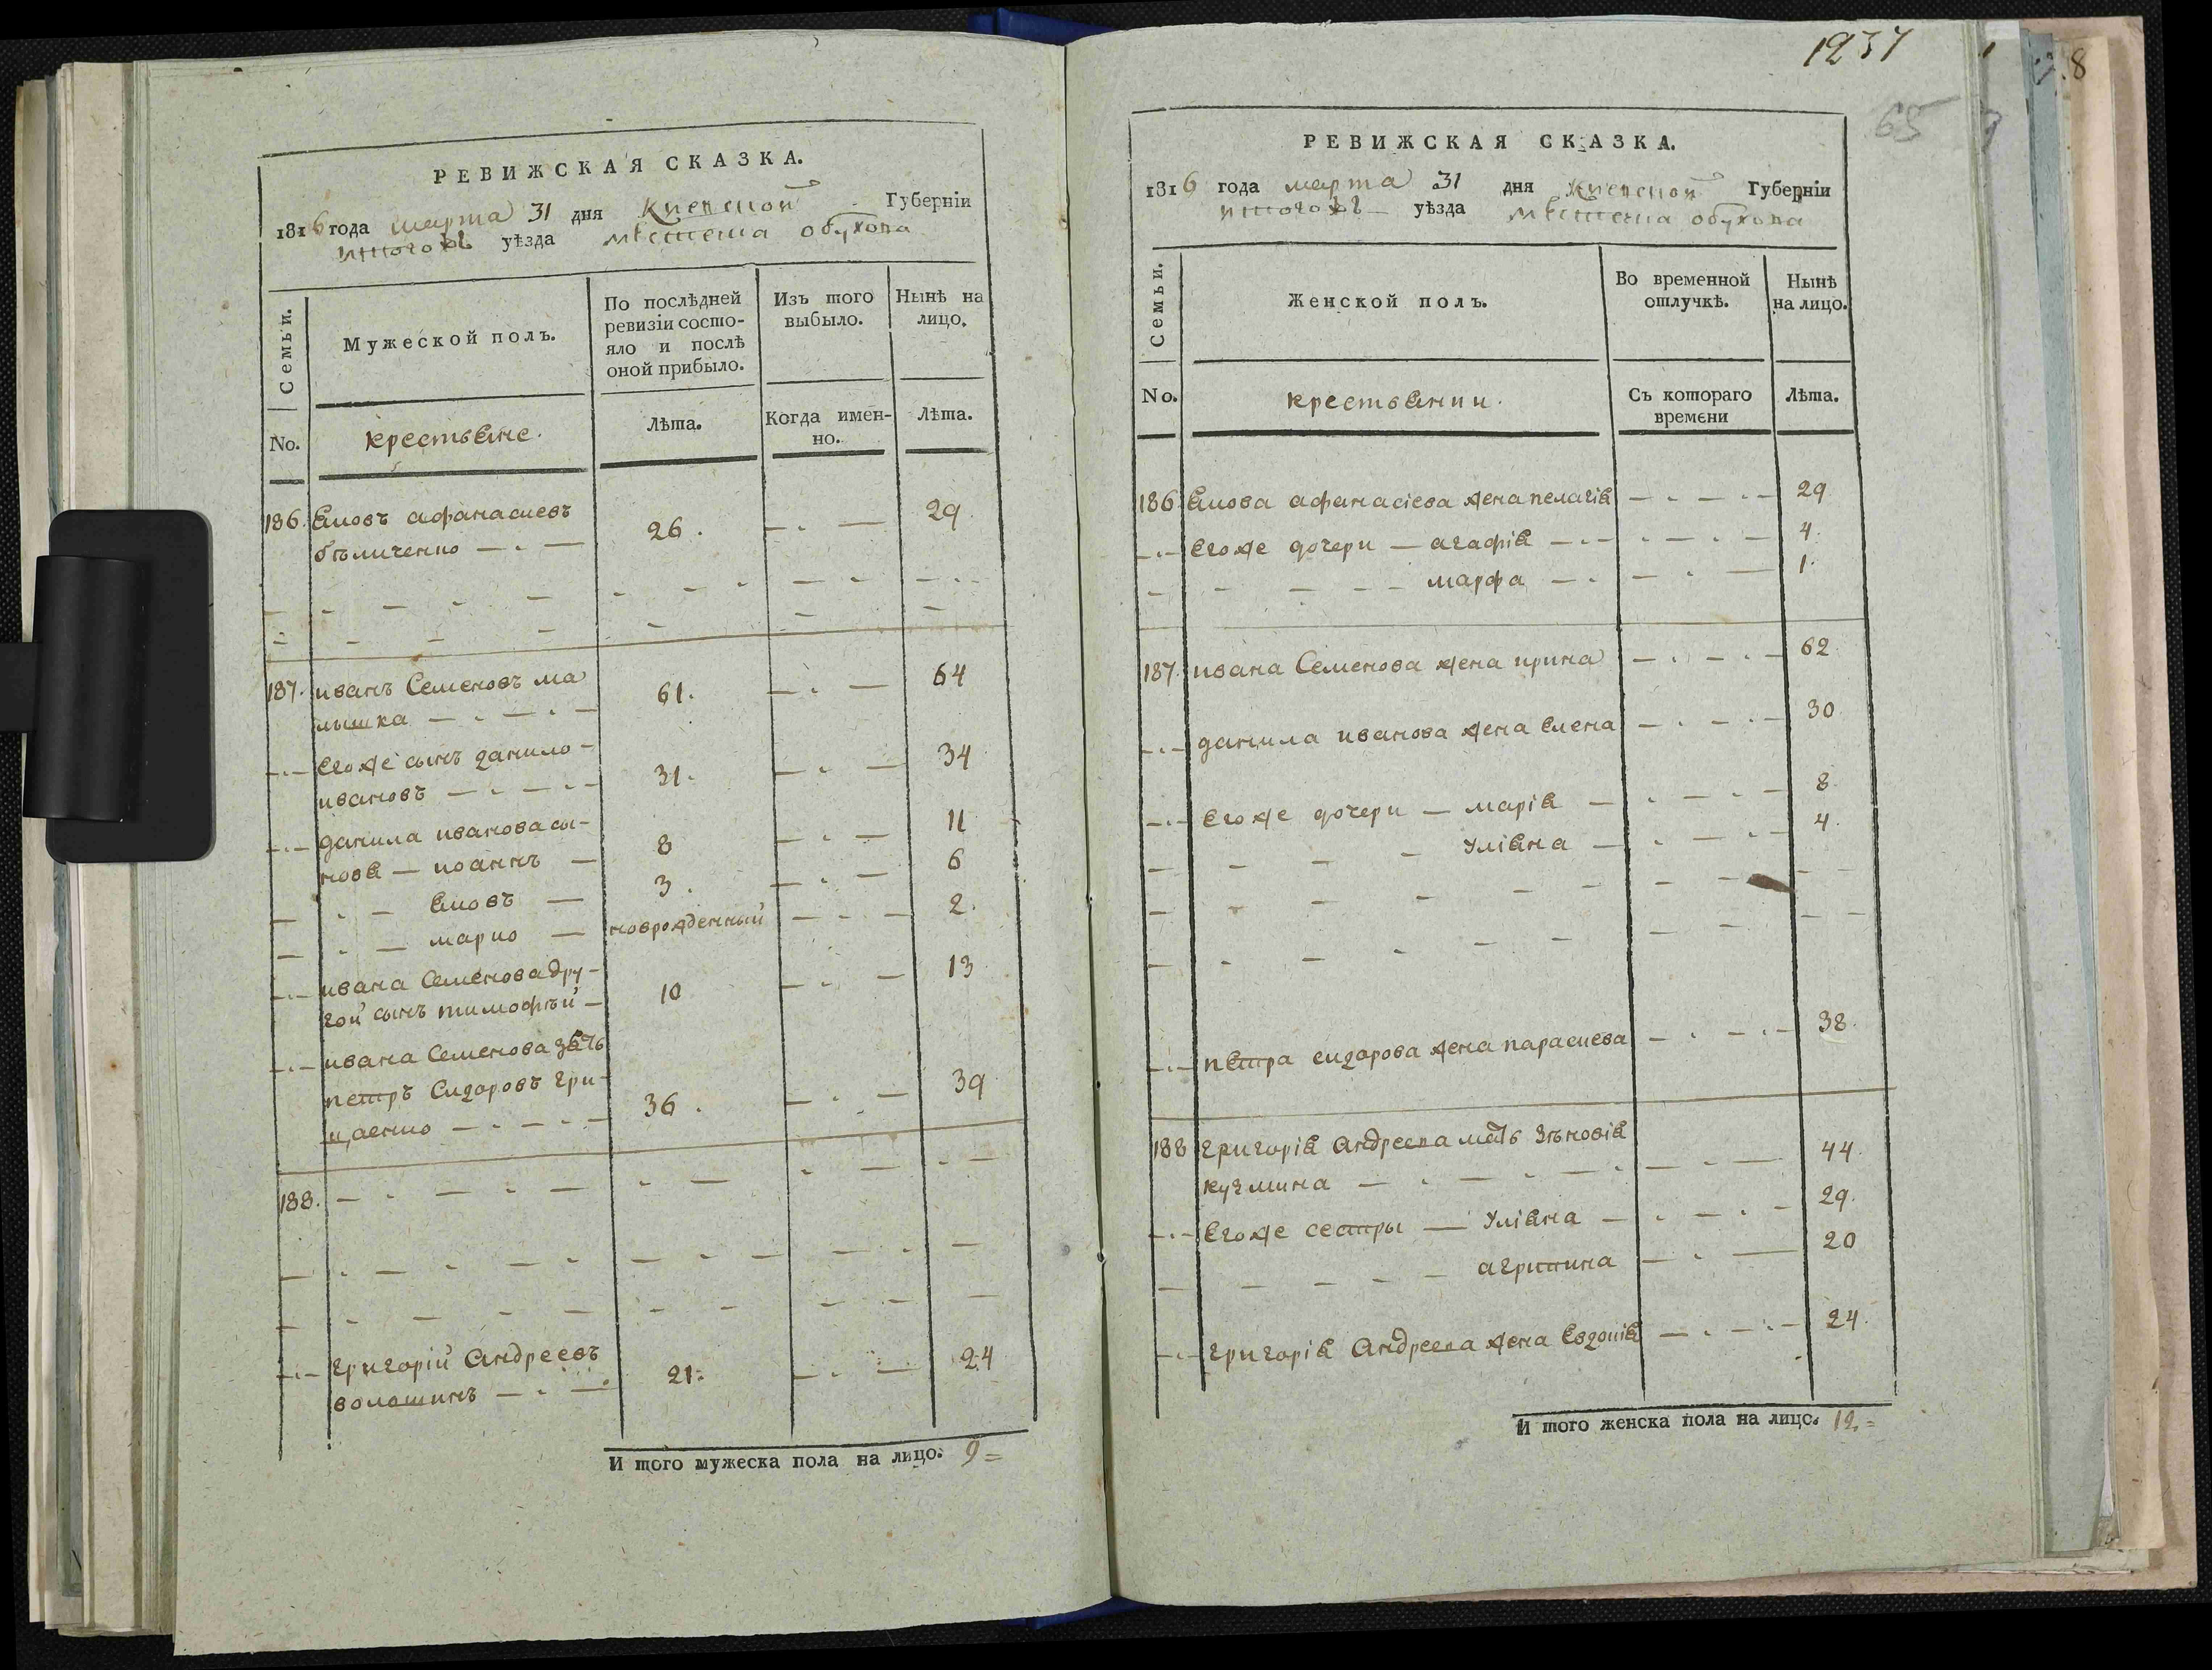 РЕВИЖСКАЯ СКАЗКА.
1816 года марта 31 дня Киевской Губерніи
уѣзда местечка обухова
Семьи.
Мужеской полъ.
По послѣдней ревизіи состо-
яло и послѣ
оной прибыло.
Изъ того
выбыло.
Нынѣ на
лицо.
No.
крестьяне.
Лѣта.
Когда имен-
но.
Лѣта.
186. яковъ афанасиевъ 26. 29
бѣличенко
187. иванъ Семеновъ ма 61. 64
лышка
егоже сынъ данило 31. 34
ивановъ
данила иванова сы-
новя — иоаннъ — 8 11
яковъ — 3. 6
марко —новрожденный 2.
ивана Семенова дру- 10 13
гой сынъ тимофѣй
ивана Семенова зять
петръ Сидоровъ гри- 36. 39
щенко
188.
григорій Андреевъ 21. 24
волошинъ
И того мужеска пола на лицо. 9=
1237
65
8
РЕВИЖСКАЯ СКАЗКА.
1816 года марта 31 дня Киевской Губерніи
уѣзда местечка обухова
Семьи.
Женской полъ.
Во временной
отлучкѣ.
Нынѣ
на лицо.
No.
крестьянки.
Съ котораго
времени
Лѣта.
186. якова афанасіева жена пелагія 29
егоже дочери — агафія 4.
марфа 1.
187. ивана Семенова жена ирина 62
данила иванова жена елена 30
егоже дочери — марія 8.
уліяна 4.
петра сидорова жена параскева 38.
188 григорія Андреева мать зѣновія 44.
кузмина
егоже сестры — уліяна 29.
агрипина 20
григорія Андреева жена евдокія 24.
И того женска пола на лицо. 12.=